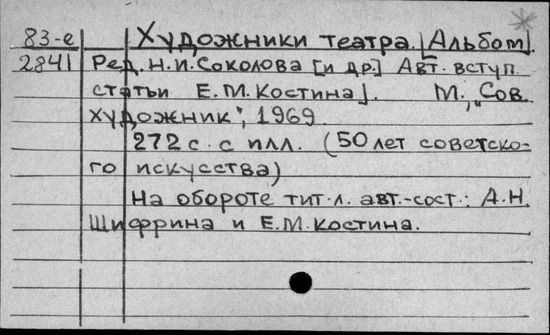 83-е Художники театра. [Альбом].
2841 Ред. Н.И. Соколова [и др.] Авт. вступ.
статьи Е.М. Костина]. М., „Сов.
художник", 1969.
272 с. с илл. (50 лет советско-
го искусства)
На обороте тит. л. авт.-сост.: А.Н.
Шифрина и Е.М. Костина.